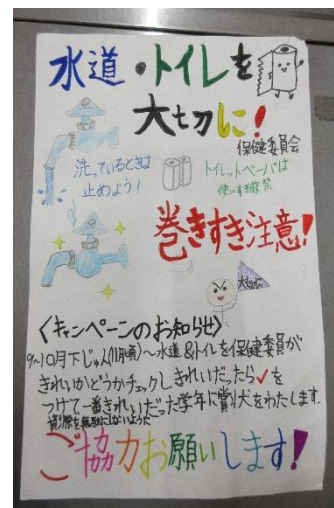 水道・トイレを
大切に!
保健委員会
洗っているときは
止めよう!
トイレットペーパーは
使いすぎ厳禁
巻きすぎ注意!
大切に
〈キャンペーンのお知らせ〉
9~10月下じゅん(11月頃)~水道&トイレを保健委員が
きれいかどうかチェックし、きれいだったら✓を
つけて、一番きれいだった学年に賞状をわたします。
資源を無駄にしないように
ご協力お願いします!